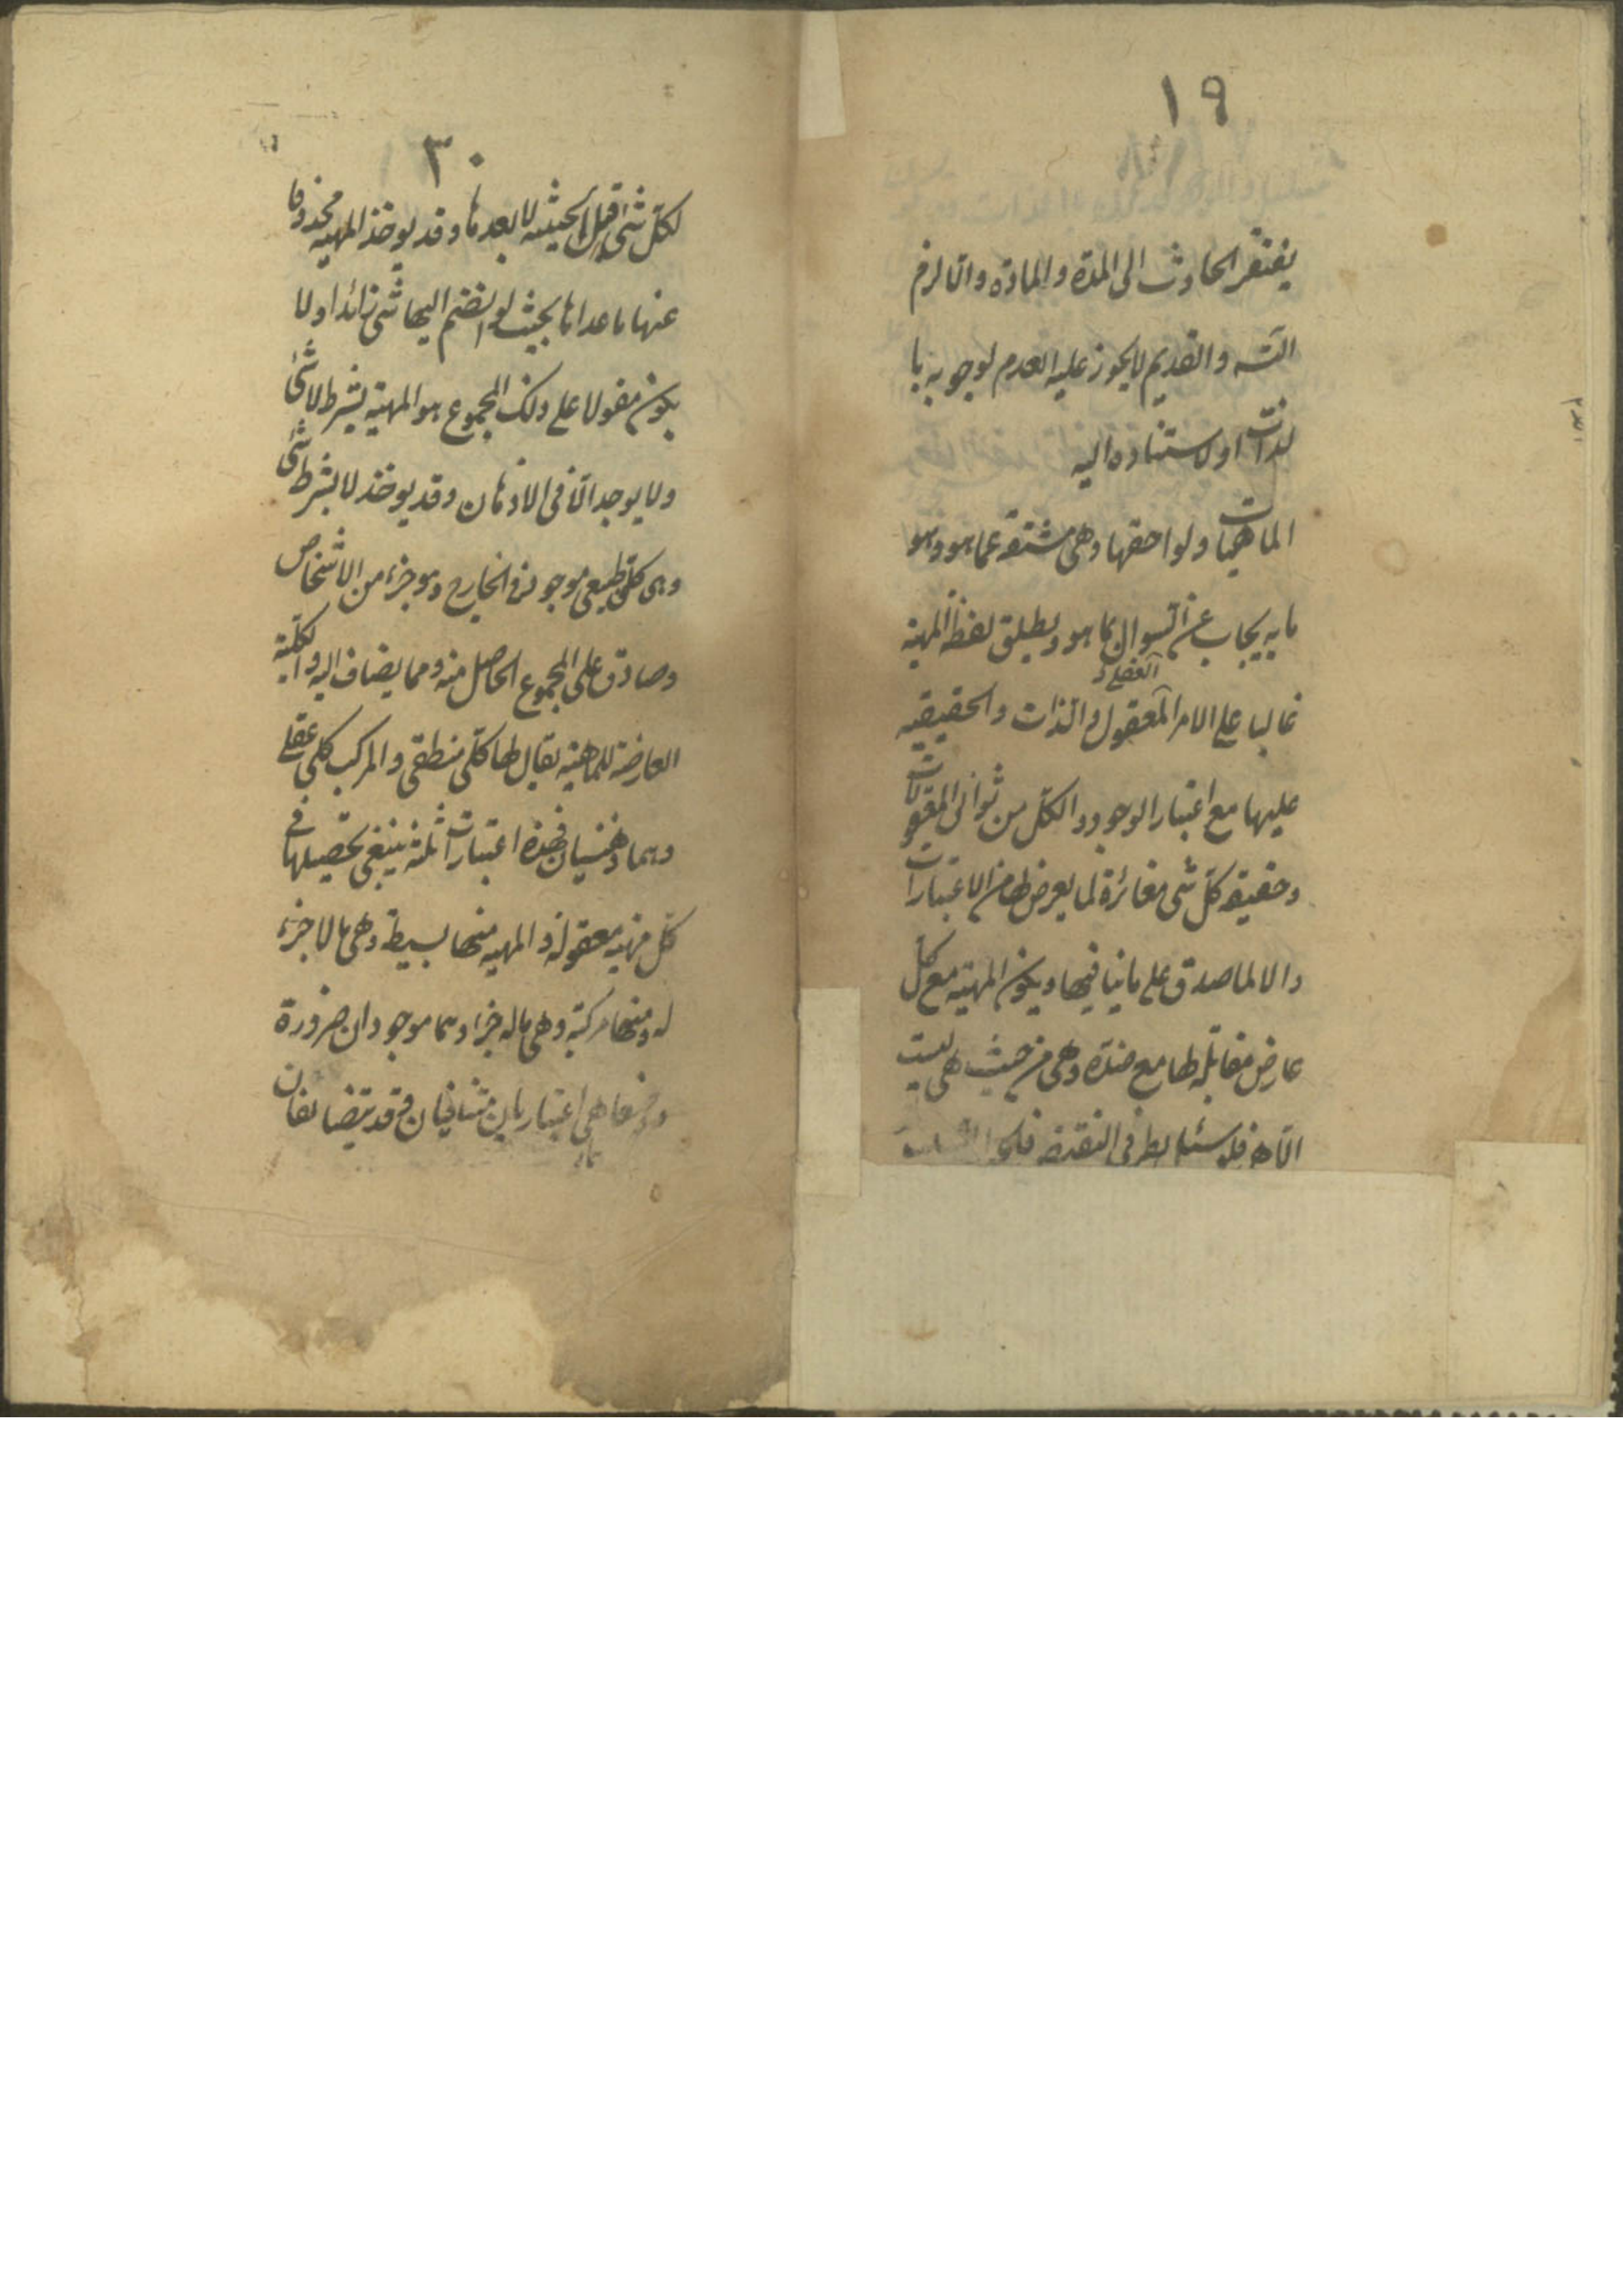 ١٩
يفتقر الحادث الى المدة والمادة والا لزم
التسه والقديم لا يجوز عليه العدم لوجوبه با
لذات او لاستناده اليه
الماهيات ولواحقها وهى مشتقة عما هو وهو
ما به يجاب عن السوال بما هو ويطلق لفظ المهية
غالبا على الامر المعقول والذات والحقيقيه
عليها مع اعتبار الوجود والكل من ثوانى المعقولات
وحقيقة كل شى مغائرة لما يعرض لها من الاعتبارات
والا لما صدق على ما ينافيها ويكون المهية مع كل
عارض مقابلة لها مع ضده وهى من حيث هى ليست
الا هى فلو سئل بطرفى النقيض فالجواب السلب
٣٠
لكل شئ قبل الحيثيه لا بعدها وقد يوخذ المهيه محذوفا
عنها ما عداها بحيث لو انضم اليها شى زائدا ولا
يكون مقولا على ذلك المجموع هو المهية بشرط لا شئ
ولا يوجد الا فى الاذهان وقد يوخذ لا بشرط شئ
وهى كلى طبيعى موجود فى الخارج وهو جزء من الاشخاص
وصادق على المجموع الحاصل منه ومما يضاف اليه والكلية
العارضة للماهية يقال لها كلى منطقى والمركب كلى عقلى
وهما ذهنيان فهذه اعتبارات ثلثة ينبغى تحصيلها فى
كل مهية معقولة والمهيه منها بسيطة وهى ما لا جزء
له ومنها مركبة وهى ما له جزء وهما موجودان ضرورة
ووصفاهى اعتباريان متنافيان وقد يتضايفان